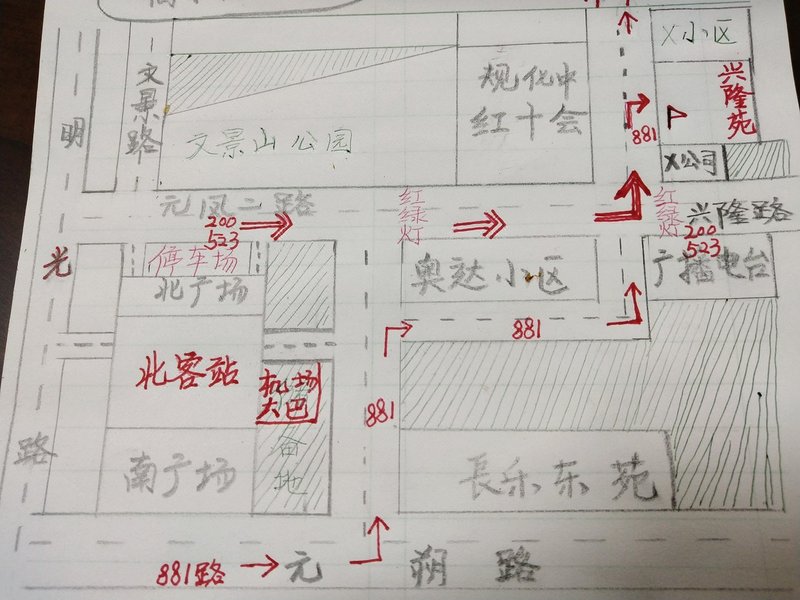 X小区
文景路
规化中
红十会
兴隆苑
881
明
文景山公园
X公司
元凤二路
红绿灯
红绿灯
兴隆路
200
523
200
523
光
停车场
北广场
奥达小区
广播电台
881
北客站
机场
大巴
881
路
南广场
長乐东苑
881路
元朔路